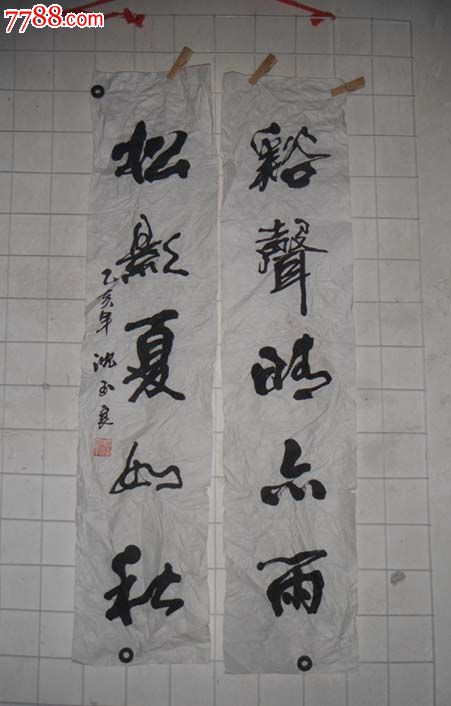 7788.com
谿聲晴亦雨
松影夏如秋
乙亥年 沈玉良